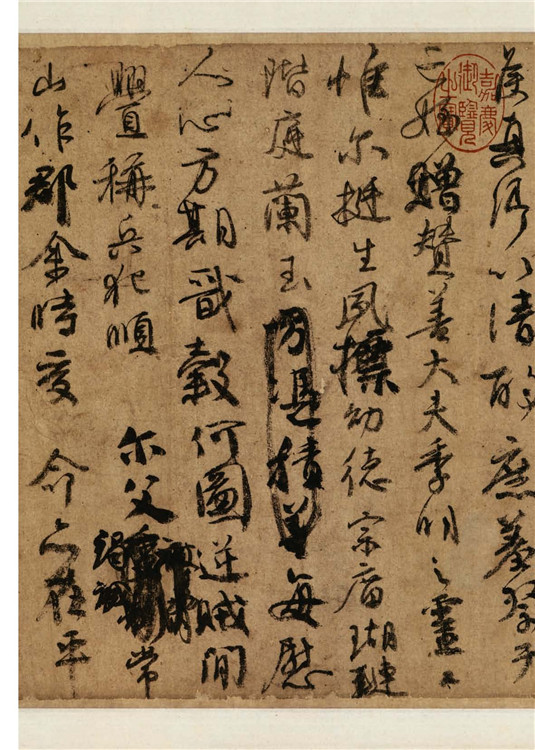 侯真卿以清酌庶羞祭于
亡姪贈贊善大夫季明之靈曰
惟尔挺生夙標幼德宗廟瑚璉
階庭蘭玉方憑積善每慰
人心方期戩穀何圖逆賊閒
釁稱兵犯順 尔父竭誠常
山作郡余時受 命亦在平
嘉慶御覽之寶